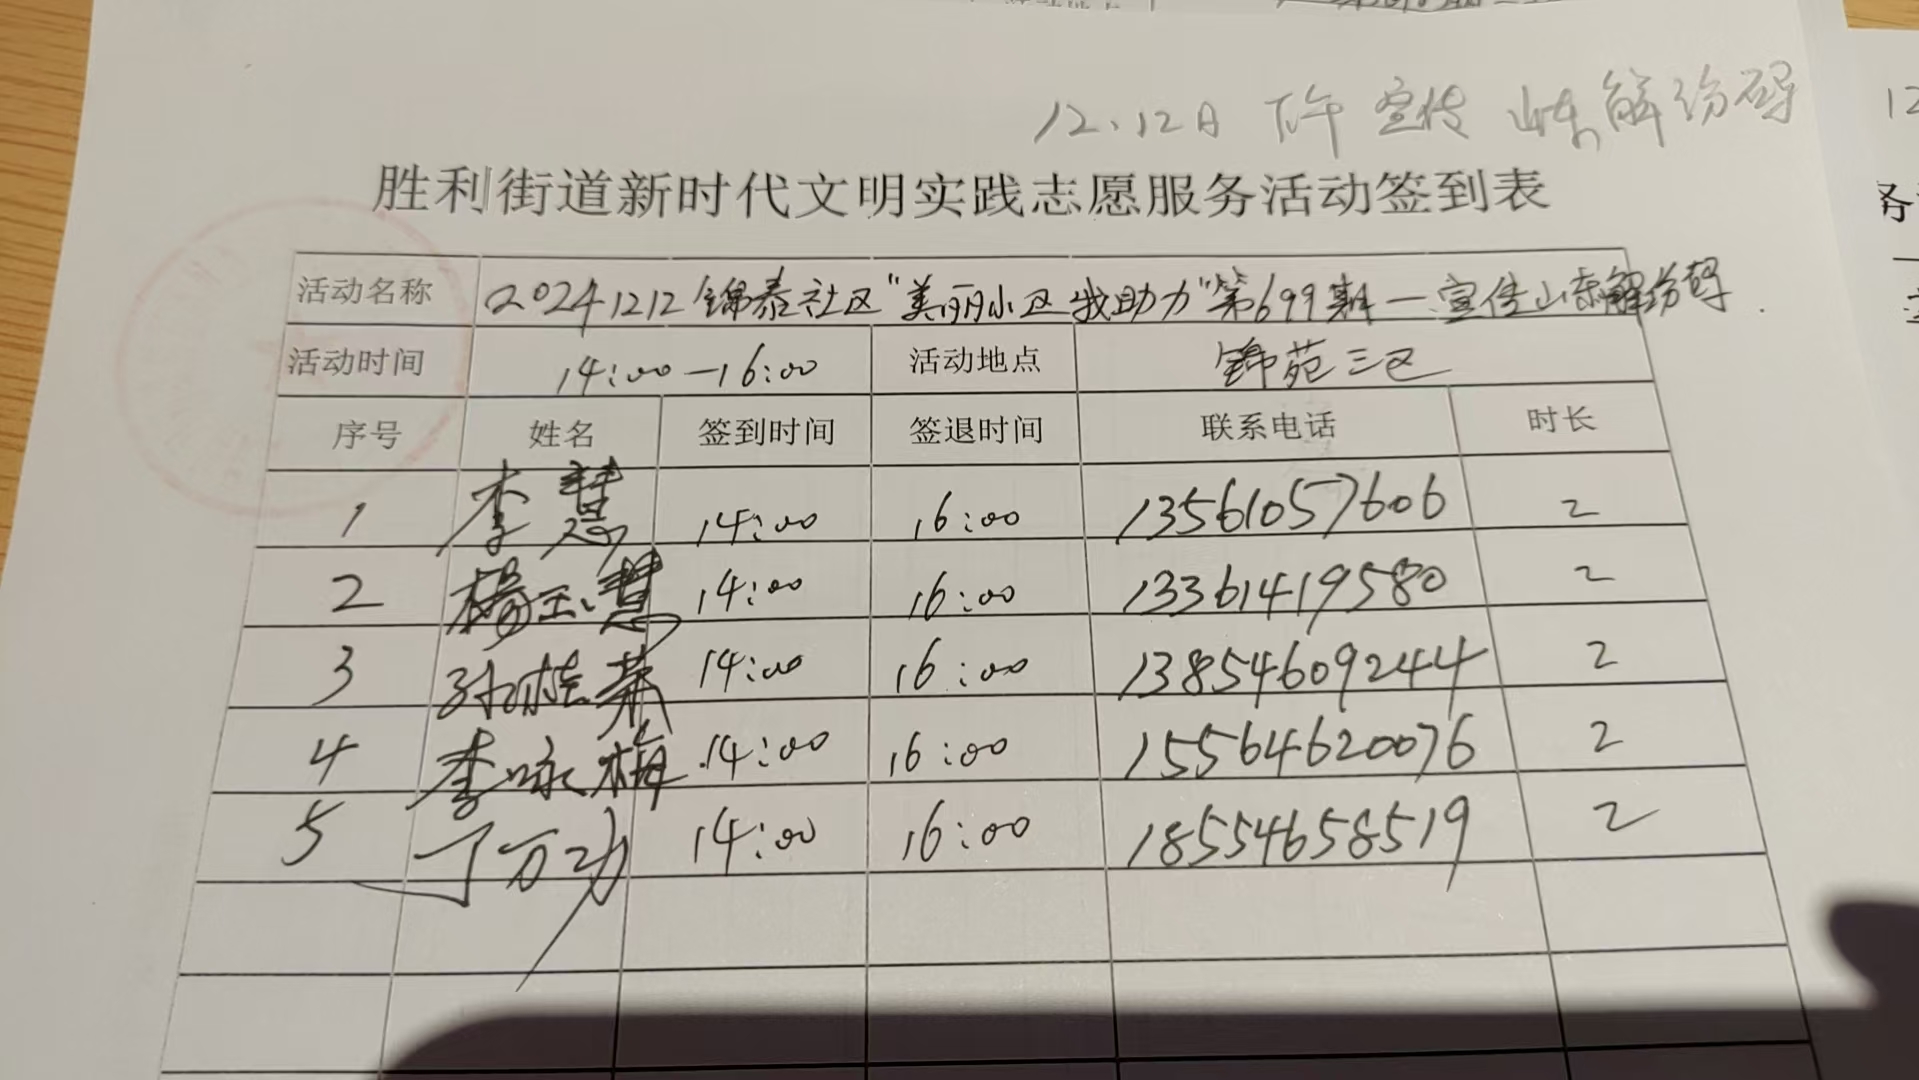 12.12日 下午 宣传 山东解纷码
胜利街道新时代文明实践志愿服务活动签到表
活动名称 20241212锦泰社区"美丽小区我助力"第699期—宣传山东解纷码
活动时间 14:00—16:00 活动地点 锦苑三区
序号 姓名 签到时间 签退时间 联系电话 时长
1 李慧 14:00 16:00 13561057606 2
2 杨玉慧 14:00 16:00 13361419580 2
3 孙桂英 14:00 16:00 13854609244 2
4 李咏梅 14:00 16:00 15564620076 2
5 丁万功 14:00 16:00 18554658519 2